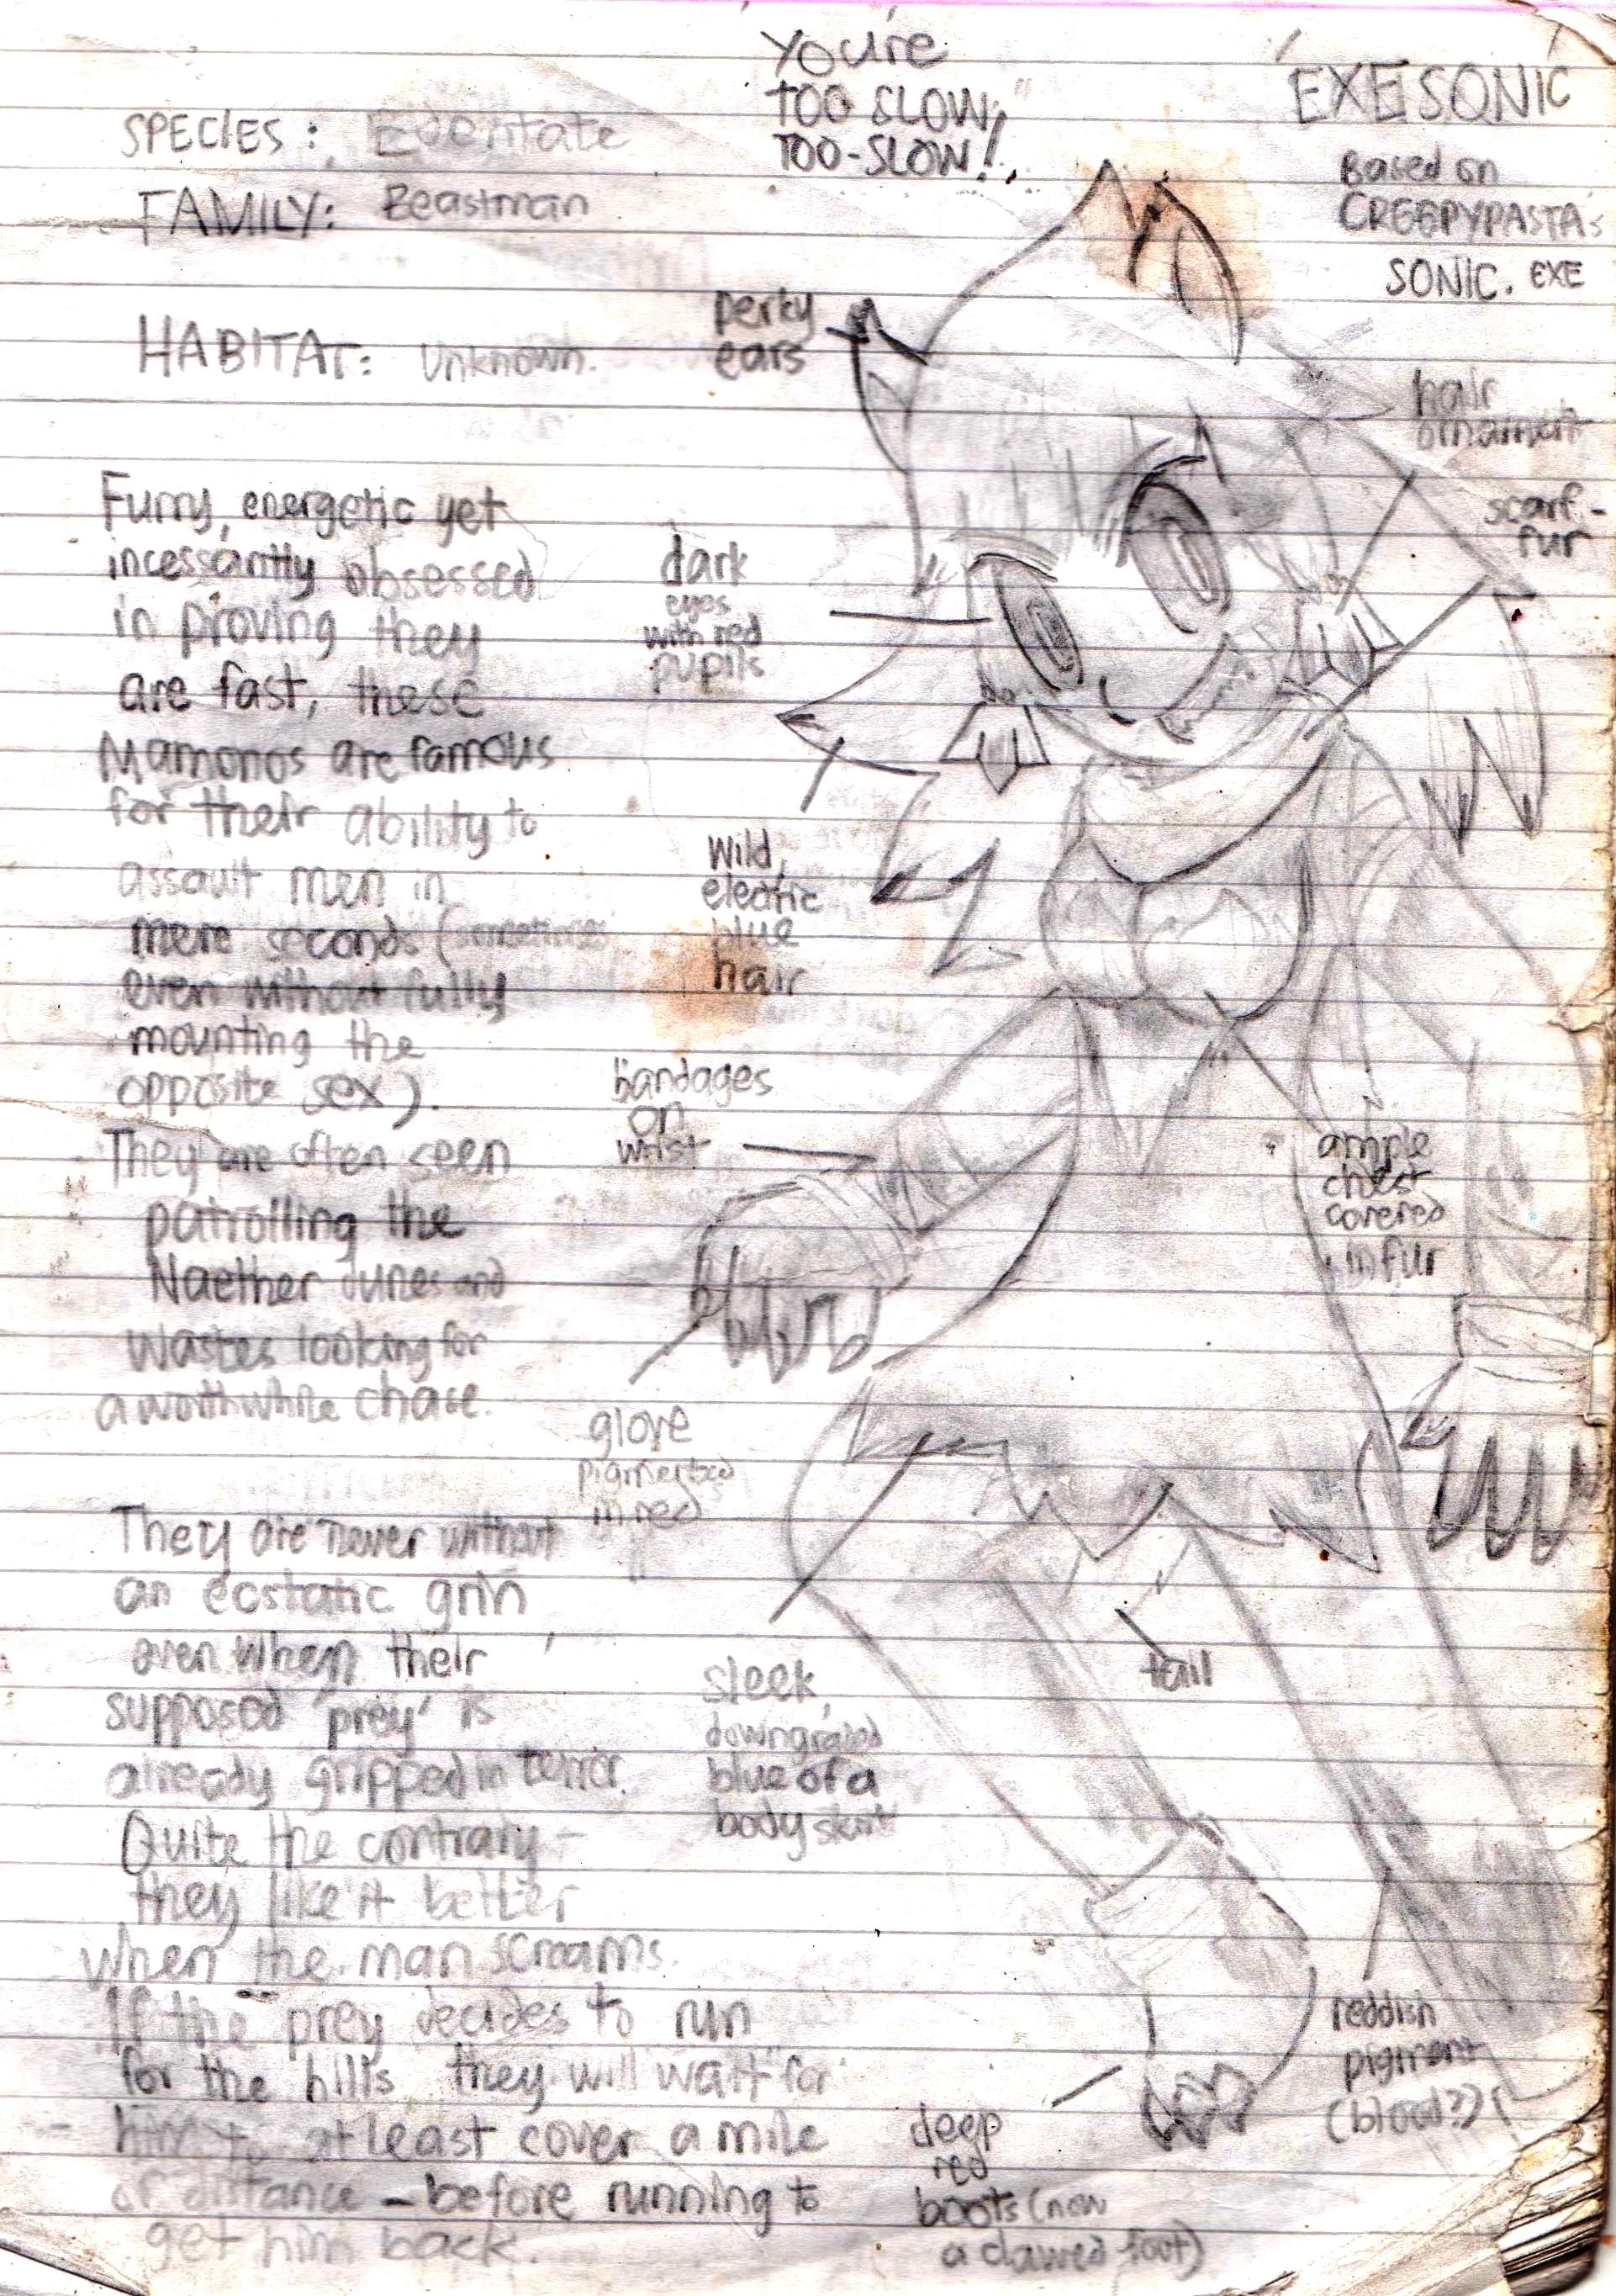 You're
TOO SLOW,
TOO-SLOW!
EXE SONIC
Based on
CREEPYPASTA's
SONIC. EXE
SPECIES:
FAMILY: Beastman
HABITAT: Unknown.
Furry, energetic yet
incessantly obsessed
in proving they
are fast, these
Mamonos are famous
for their ability to
assault men in
mere seconds (sometimes
even without fully
mounting the
opposite sex).
They are often seen
patrolling the
Naether Dunes and
Wastes looking for
a worthwhile chase.
They are never without
an ecstatic grin
even when their
supposed 'prey' is
already gripped in terror.
Quite the contrary -
they like it better
when the man screams.
If the prey decides to run
for the hills they will "wait" for
him to at least cover a mile
of distance - before running to
get him back.
perky
ears
hair
ornament
scarf-
fur
dark
eyes
with red
pupils
Wild,
electric
blue
hair
bandages
on
wrist
ample
chest
covered
in fur
glove
pigmented
in red
tail
sleek,
downgraded
blue of a
body skirt
reddish
pigment
(blood?)
deep
red
boots (now
a clawed foot)